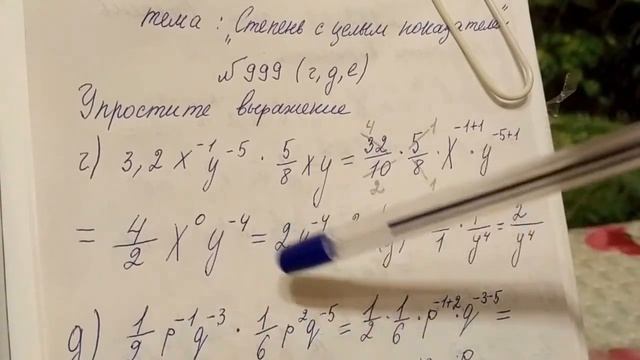 тема: „Степень с целым показателем".
№999 (г, д, е)
Упростите выражение
г) 3,2 x⁻¹y⁻⁵ · 5/8 xy = 32/10 · 5/8 · x⁻¹⁺¹ · y⁻⁵⁺¹
= 4/2 x⁰ y⁻⁴ = 2y⁻⁴ 1 · 1/y⁴ = 2/y⁴
д) p⁻¹q⁻³ · 1/6 p²q⁻⁵ = 1/2 · 1/6 · p⁻¹⁺² · q⁻³⁻⁵ =